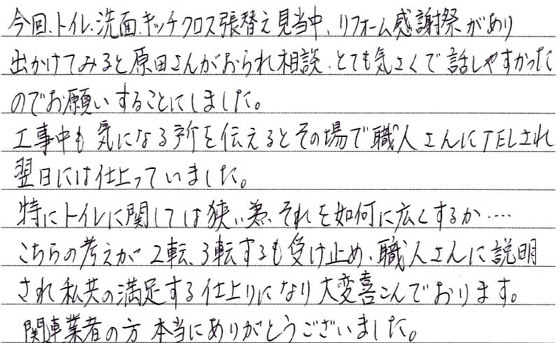 今回、トイレ、洗面、キッチクロス張替え見当中、リフォーム感謝祭があり
出かけてみると原田さんがおられ相談、とても気さくで話しやすかった
のでお願いすることにしました。
工事中も気になる所を伝えるとその場で職人さんにTELされ
翌日には仕上っていました。
特にトイレに関しては狭い為、それを如何に広くするか‥‥
こちらの考えが2転、3転するも受け止め、職人さんに説明
され私共の満足する仕上りになり大変喜こんでおります。
関連業者の方 本当にありがとうございました。